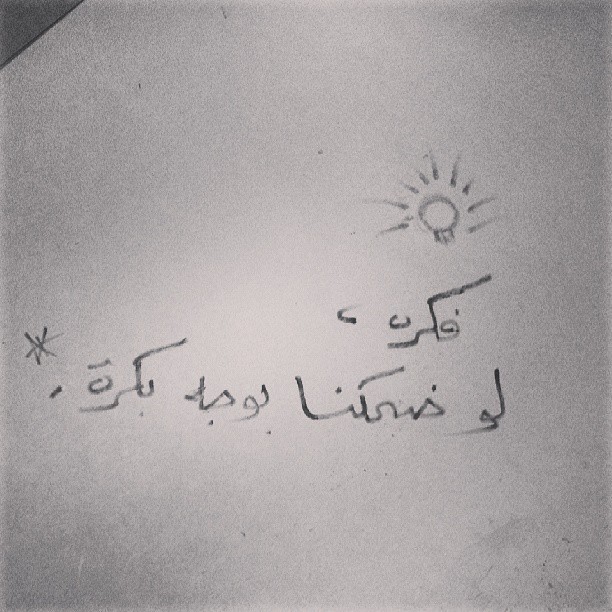 فكره ،
لو ضحكنا بوجه بكرة . *